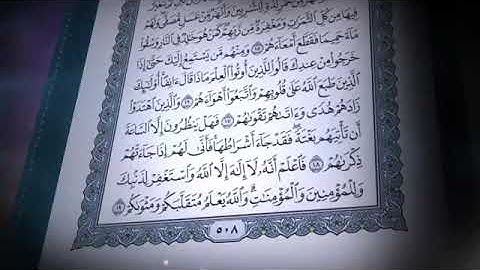 فِيهَا مِن كُلِّ الثَّمَرَٰتِ وَمَغْفِرَةٌ مِّن رَّبِّهِمْ كَمَنْ هُوَ خَٰلِدٌ فِي النَّارِ وَسُقُوا
مَاءً حَمِيمًا فَقَطَّعَ أَمْعَاءَهُمْ ١٥ وَمِنْهُم مَّن يَسْتَمِعُ إِلَيْكَ حَتَّىٰ إِذَا
خَرَجُوا مِنْ عِندِكَ قَالُوا لِلَّذِينَ أُوتُوا الْعِلْمَ مَاذَا قَالَ ءَانِفًا أُولَٰئِكَ
الَّذِينَ طَبَعَ اللَّهُ عَلَىٰ قُلُوبِهِمْ وَاتَّبَعُوا أَهْوَاءَهُمْ ١٦ وَالَّذِينَ اهْتَدَوْا
زَادَهُمْ هُدًى وَءَاتَىٰهُمْ تَقْوَىٰهُمْ ١٧ فَهَلْ يَنظُرُونَ إِلَّا السَّاعَةَ
أَن تَأْتِيَهُم بَغْتَةً فَقَدْ جَاءَ أَشْرَاطُهَا فَأَنَّىٰ لَهُمْ إِذَا جَاءَتْهُمْ
ذِكْرَىٰهُمْ ١٨ فَاعْلَمْ أَنَّهُ لَا إِلَٰهَ إِلَّا اللَّهُ وَاسْتَغْفِرْ لِذَنبِكَ
وَلِلْمُؤْمِنِينَ وَالْمُؤْمِنَٰتِ وَاللَّهُ يَعْلَمُ مُتَقَلَّبَكُمْ وَمَثْوَىٰكُمْ ١٩
٥٠٨